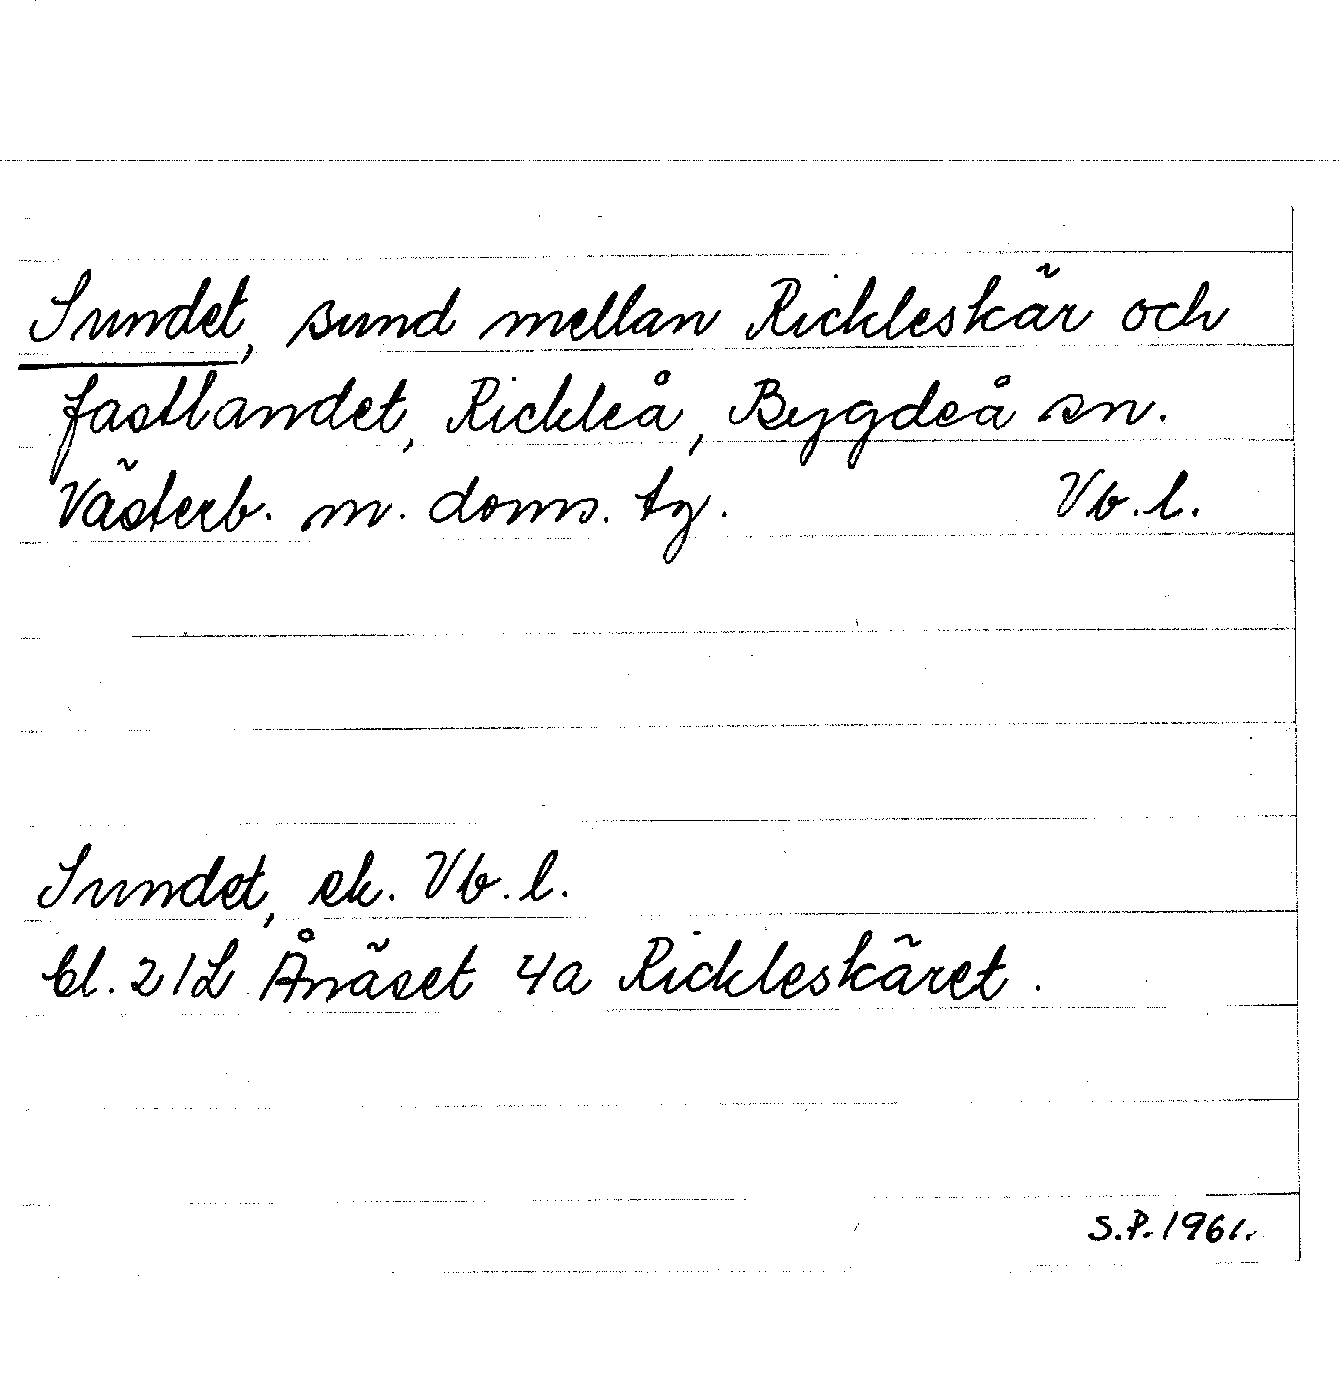 Sundet, sund mellan Rickleskär och
fastlandet, Rickleå, Bygdeå sn.
Västerb. m. doms. tg. Vb. l.
Sundet, ek. Vb. l.
bl. 21L Ånäset 4a Rickleskäret.
S.P. 1961.